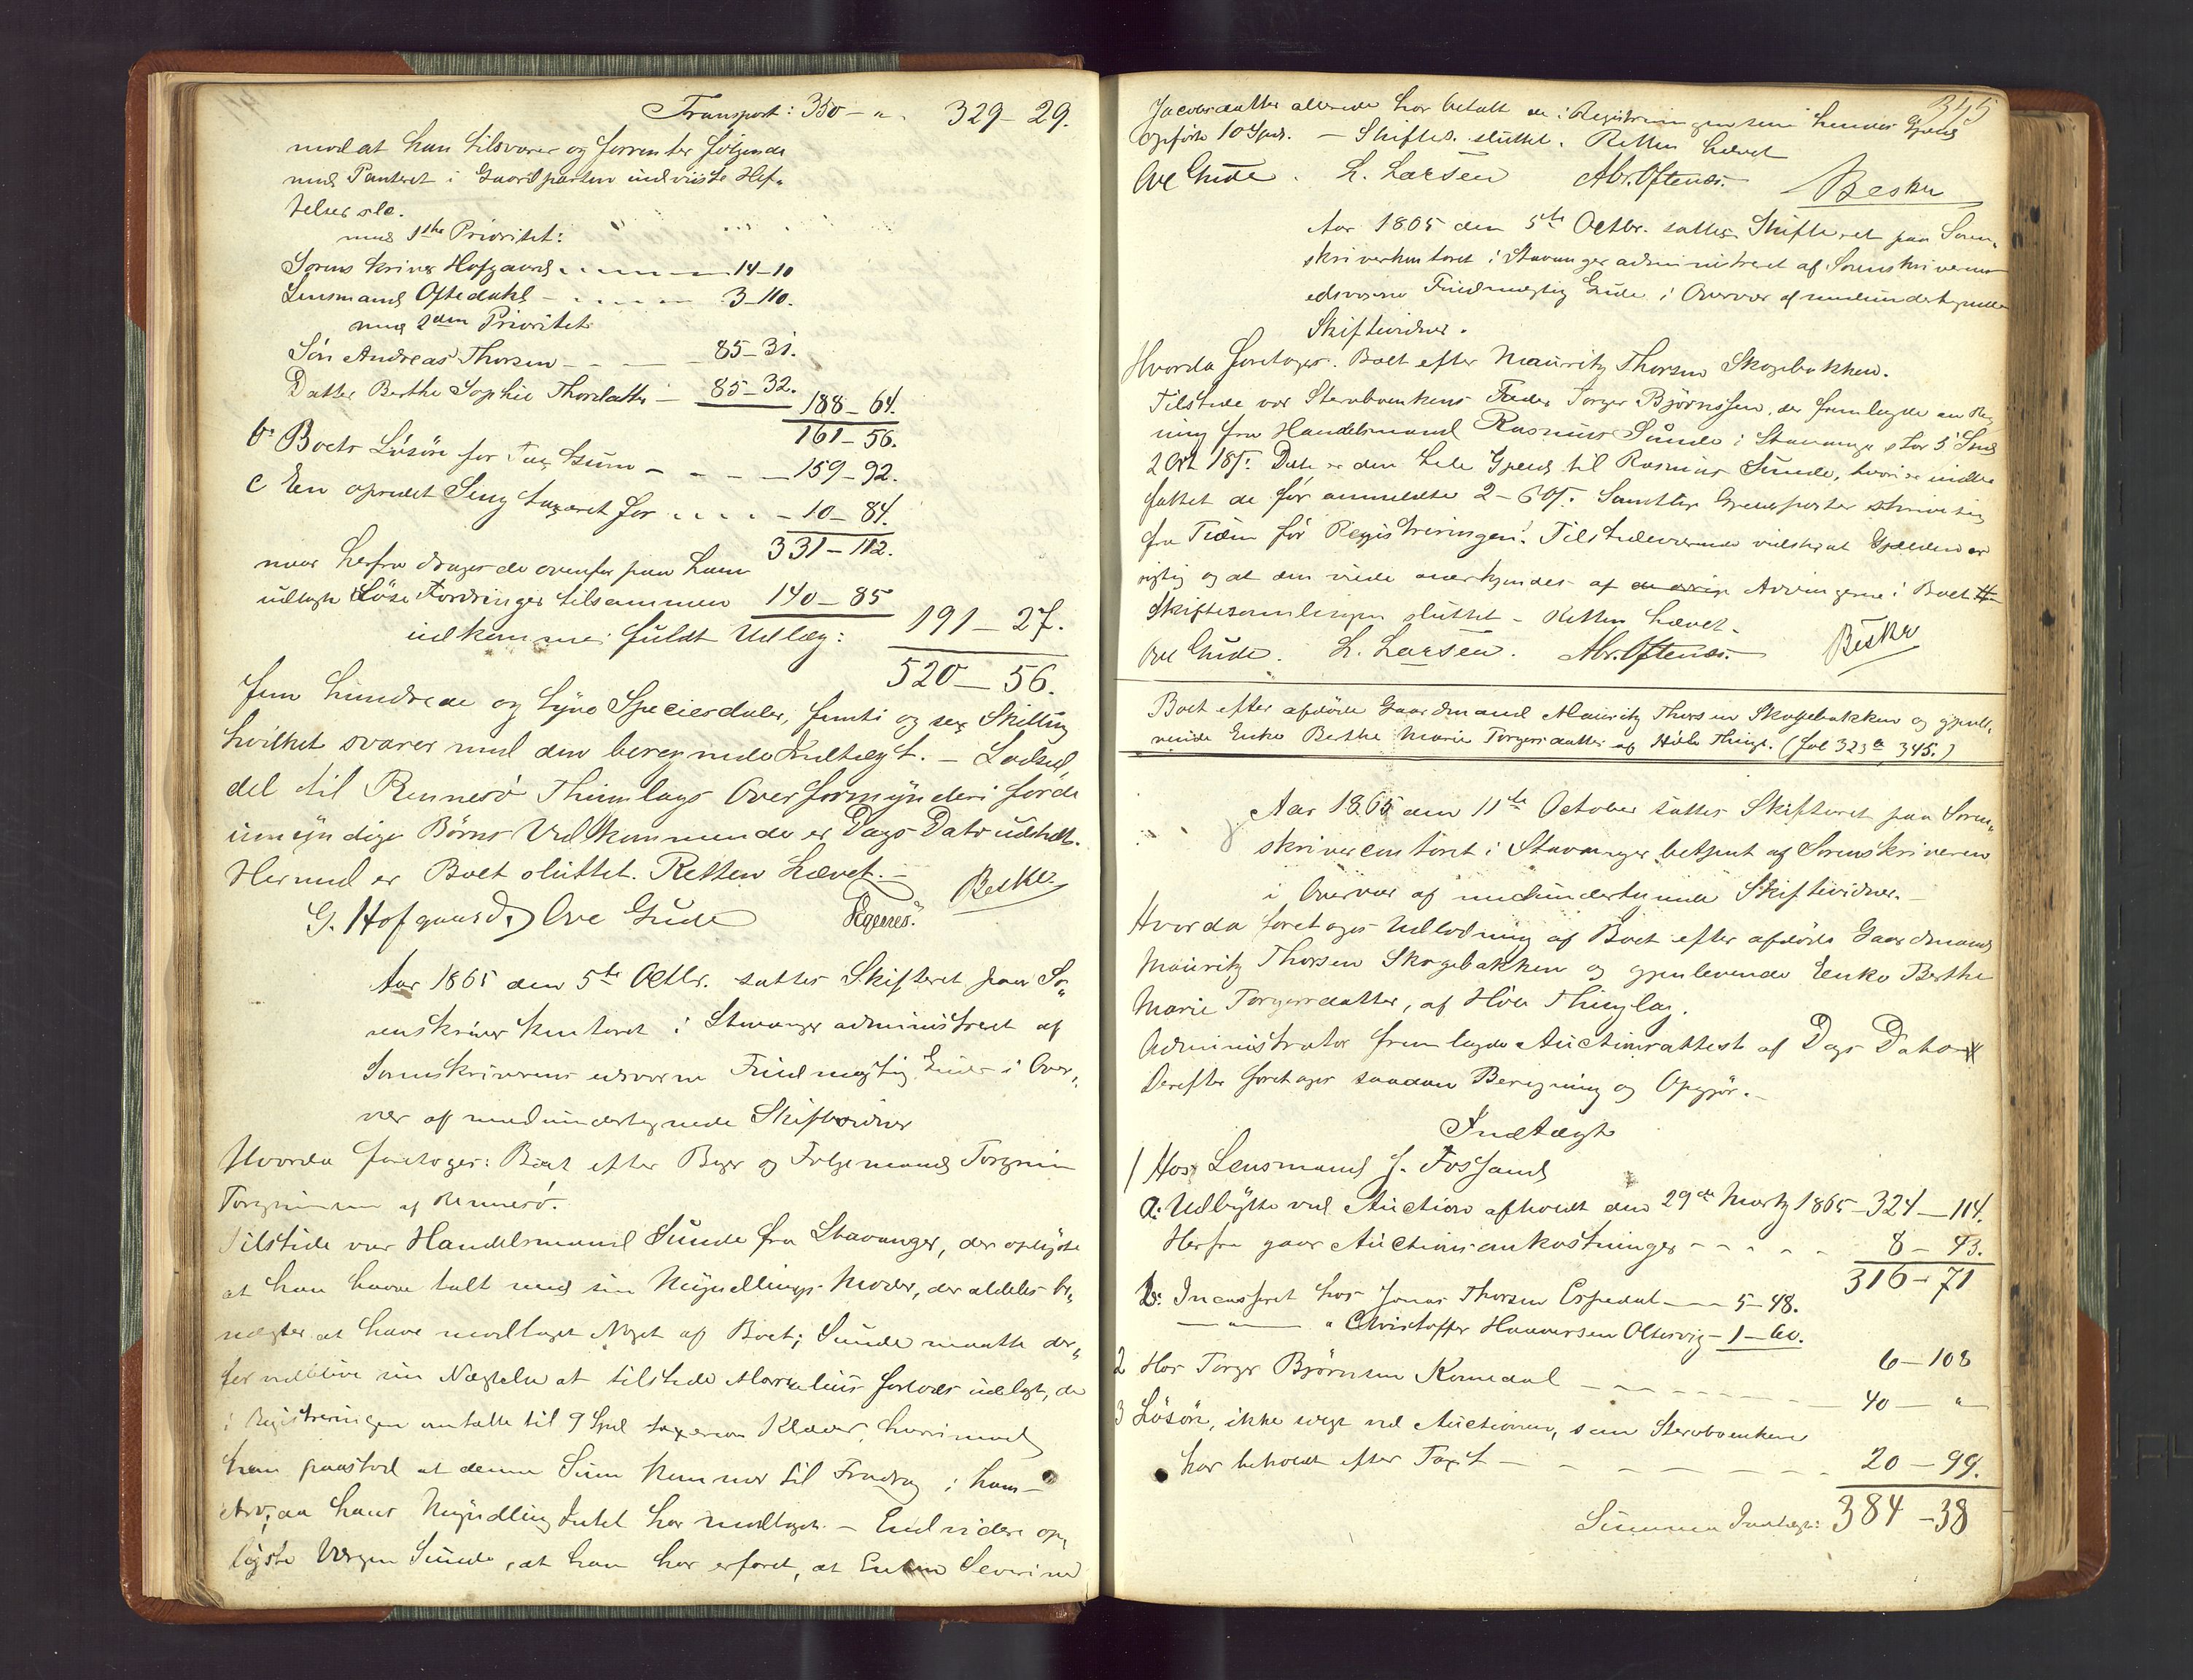 Transport: 350 – " – 329 – 29.
mod at han tilsvarer og forrenter følgende
med Panteret i Gaardparten indviiste Hef-
telser sle.
med 1ste Prioritet:
Sorenskriver Hofgaard . . . . 14 – 10
Lensmand Oftedahl – . . . . 3 – 110.
med 2den Prioritet
Søn Andreas Thorsen – – – 85 – 31.
Datter Berthe Sophie Thorsdatter – 85 – 32.
188 – 64.
161 – 56.
b. Boets Løsøre for Tax Sum – – – – 159 – 92.
c En opredet Seng taxeret for . . . . – 10 – 84.
331 – 112.
naar herfra drages de ovenfor paa ham
udlagte Løse Fordringer tilsammen 140 – 85
191 – 27.
udkommer fuldt Udlæg:
520 – 56.
fem hundrede og tyve Speciesdaler, femti og sex Skilling
hvilket svarer med den beregnede Indtægt. – Lodsed-
del til Rennesø Thinglags Overformynderi for de
umyndige Børns Vedkommende er Dags Dato udstedt.
Hermed er Boet sluttet. Retten hævet. –
G. Hofgaard. Ove Gude Egenes. Beske
Aar 1865 den 5te Octbr. sattes Skifteret paa So-
renskriverkontoret i Stavanger administreret af
Sorenskriverens edsvorne Fuldmægtig Gude i Over-
vær af medundertegnede Skiftevidner
Hvorda foretoges: Boet efter Byg og Følgemand Torgrim
Torgrimsen af Rennesø.
Tilstede var Handelsmand Sunde fra Stavanger, der oplyste
at han havde talt med sin Myndlings Moder, der aldeles be-
nægter at have modtaget Noget af Boet; Sunde maatte der-
for vedblive sin Nægtelse at tilstede Mareelius forlods udlagt, de
i Registreringen omtalte til 9 Spd taxerede Klæder, hvorimod
han paastod at denne Sum kommer til Fradrag i hans
Arv, da hans Myndling Intet har modtaget. – Endvidere op-
lyste Værgen Sunde, at han har erfaret, at Enken Severine
345
Jacobsdatter allerede har betalt de i Registreringen som hendes Gjeld
opførte 10 Spd. – Skiftes. sluttet. Retten hævet
Ove Gude. L. Larsen Abr. Oftenæs. Beske
Aar 1865 den 5te Octbr. sattes Skifteret paa Soren-
skriverkontoret i Stavanger administreret af Sorenskriverens
edsvorne Fuldmægtig Gude i Overvær af medundertegnede
Skiftevidner.
Hvorda foretoges. Boet efter Mauritz Thorsen Skogebakken.
Tilstede var Stervboenkens Fader Torger Bjørnssen, der fremlagde en Reg-
ning fra Handelsmand Rasmus Sunde i Stavanger stor 5 Spd
2 Ort 18 s. Dette er den hele Gjeld til Rasmus Sunde, hvori er indbe-
fattet de før anmeldte 2 – 60 s. Samtlige Gjeldsposter skrive sig
fra Tiden før Registreringen. Tilstedeværende vidste, at Gjælden er
rigtig og at den vilde anerkjendes af de øvrige Arvingerne i Boet
Skiftesamlingen sluttet – Retten hævet –
Ove Gude. L. Larsen. Abr. Oftenæs. – Beske
Boet efter afdøde Gaardmand Mauritz Thorsen Skogebakken og gjenle-
vende Enke Berthe Marie Torgersdatter af Høle Thingl. (fol 323a, 345.)
Aar 1865 den 11te October sattes Skifteret paa Soren-
skrivercontoret i Stavanger betjent af Sorenskriveren
i Overvær af medundertegnede Skiftevidner. –
Hvorda foretoges Udlodning af Boet efter afdøde Gaardmand
Mauritz Thorsen Skogebakken og gjenlevende Enke Berthe
Marie Torgersdatter, af Høle Thinglag.
Administrator fremlagde Auctionsattest af Dags Dato
Derefter foretoges saadan Beregning og Opgjør. –
Indtægt
1 Hos Lensmand J. Fossand
a: Udbytte ved Auction afholdt den 29de Martz 1865 – 324 – 114.
Herfra gaar Auctionsomkostninger – – – – 8 – 43.
316 – 71
b: Incasseret hos Jonas Thorsen Espedal – – 5 – 48.
— " — " Christoffer Haaversen Oltesvig – 1 – 60.
6 – 108
2 Hos Torger Bjørnsen Komedal – – – – – 40 – "
3 Løsøre, ikke solgt ved Auctionen, som Stervboenken
har beholdt efter Taxt – – – – – 20 – 99.
Summa Indtægt: 384 – 38